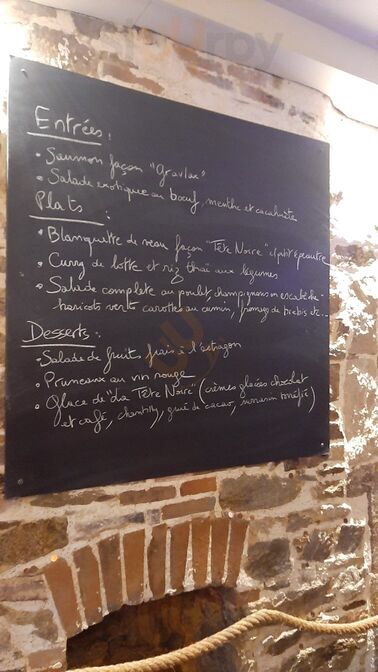 Entrées :
• Saumon façon "gravlax"
• Salade exotique au bœuf, menthe et cacahuète
Plats :
• Blanquette de veau façon "Tête Noire" et petit épeautre
• Curry de lotte et riz thaï aux légumes
• Salade complète au poulet, champignons en escabèche
haricots verts carottes au cumin, fromage de brebis etc...
Desserts :
• Salade de fruits frais à l'estragon
• Pruneaux au vin rouge
• Glace de "La Tête Noire" (crèmes glacées chocolat
et café, chantilly, grué de cacao, sarrasin torréfié)